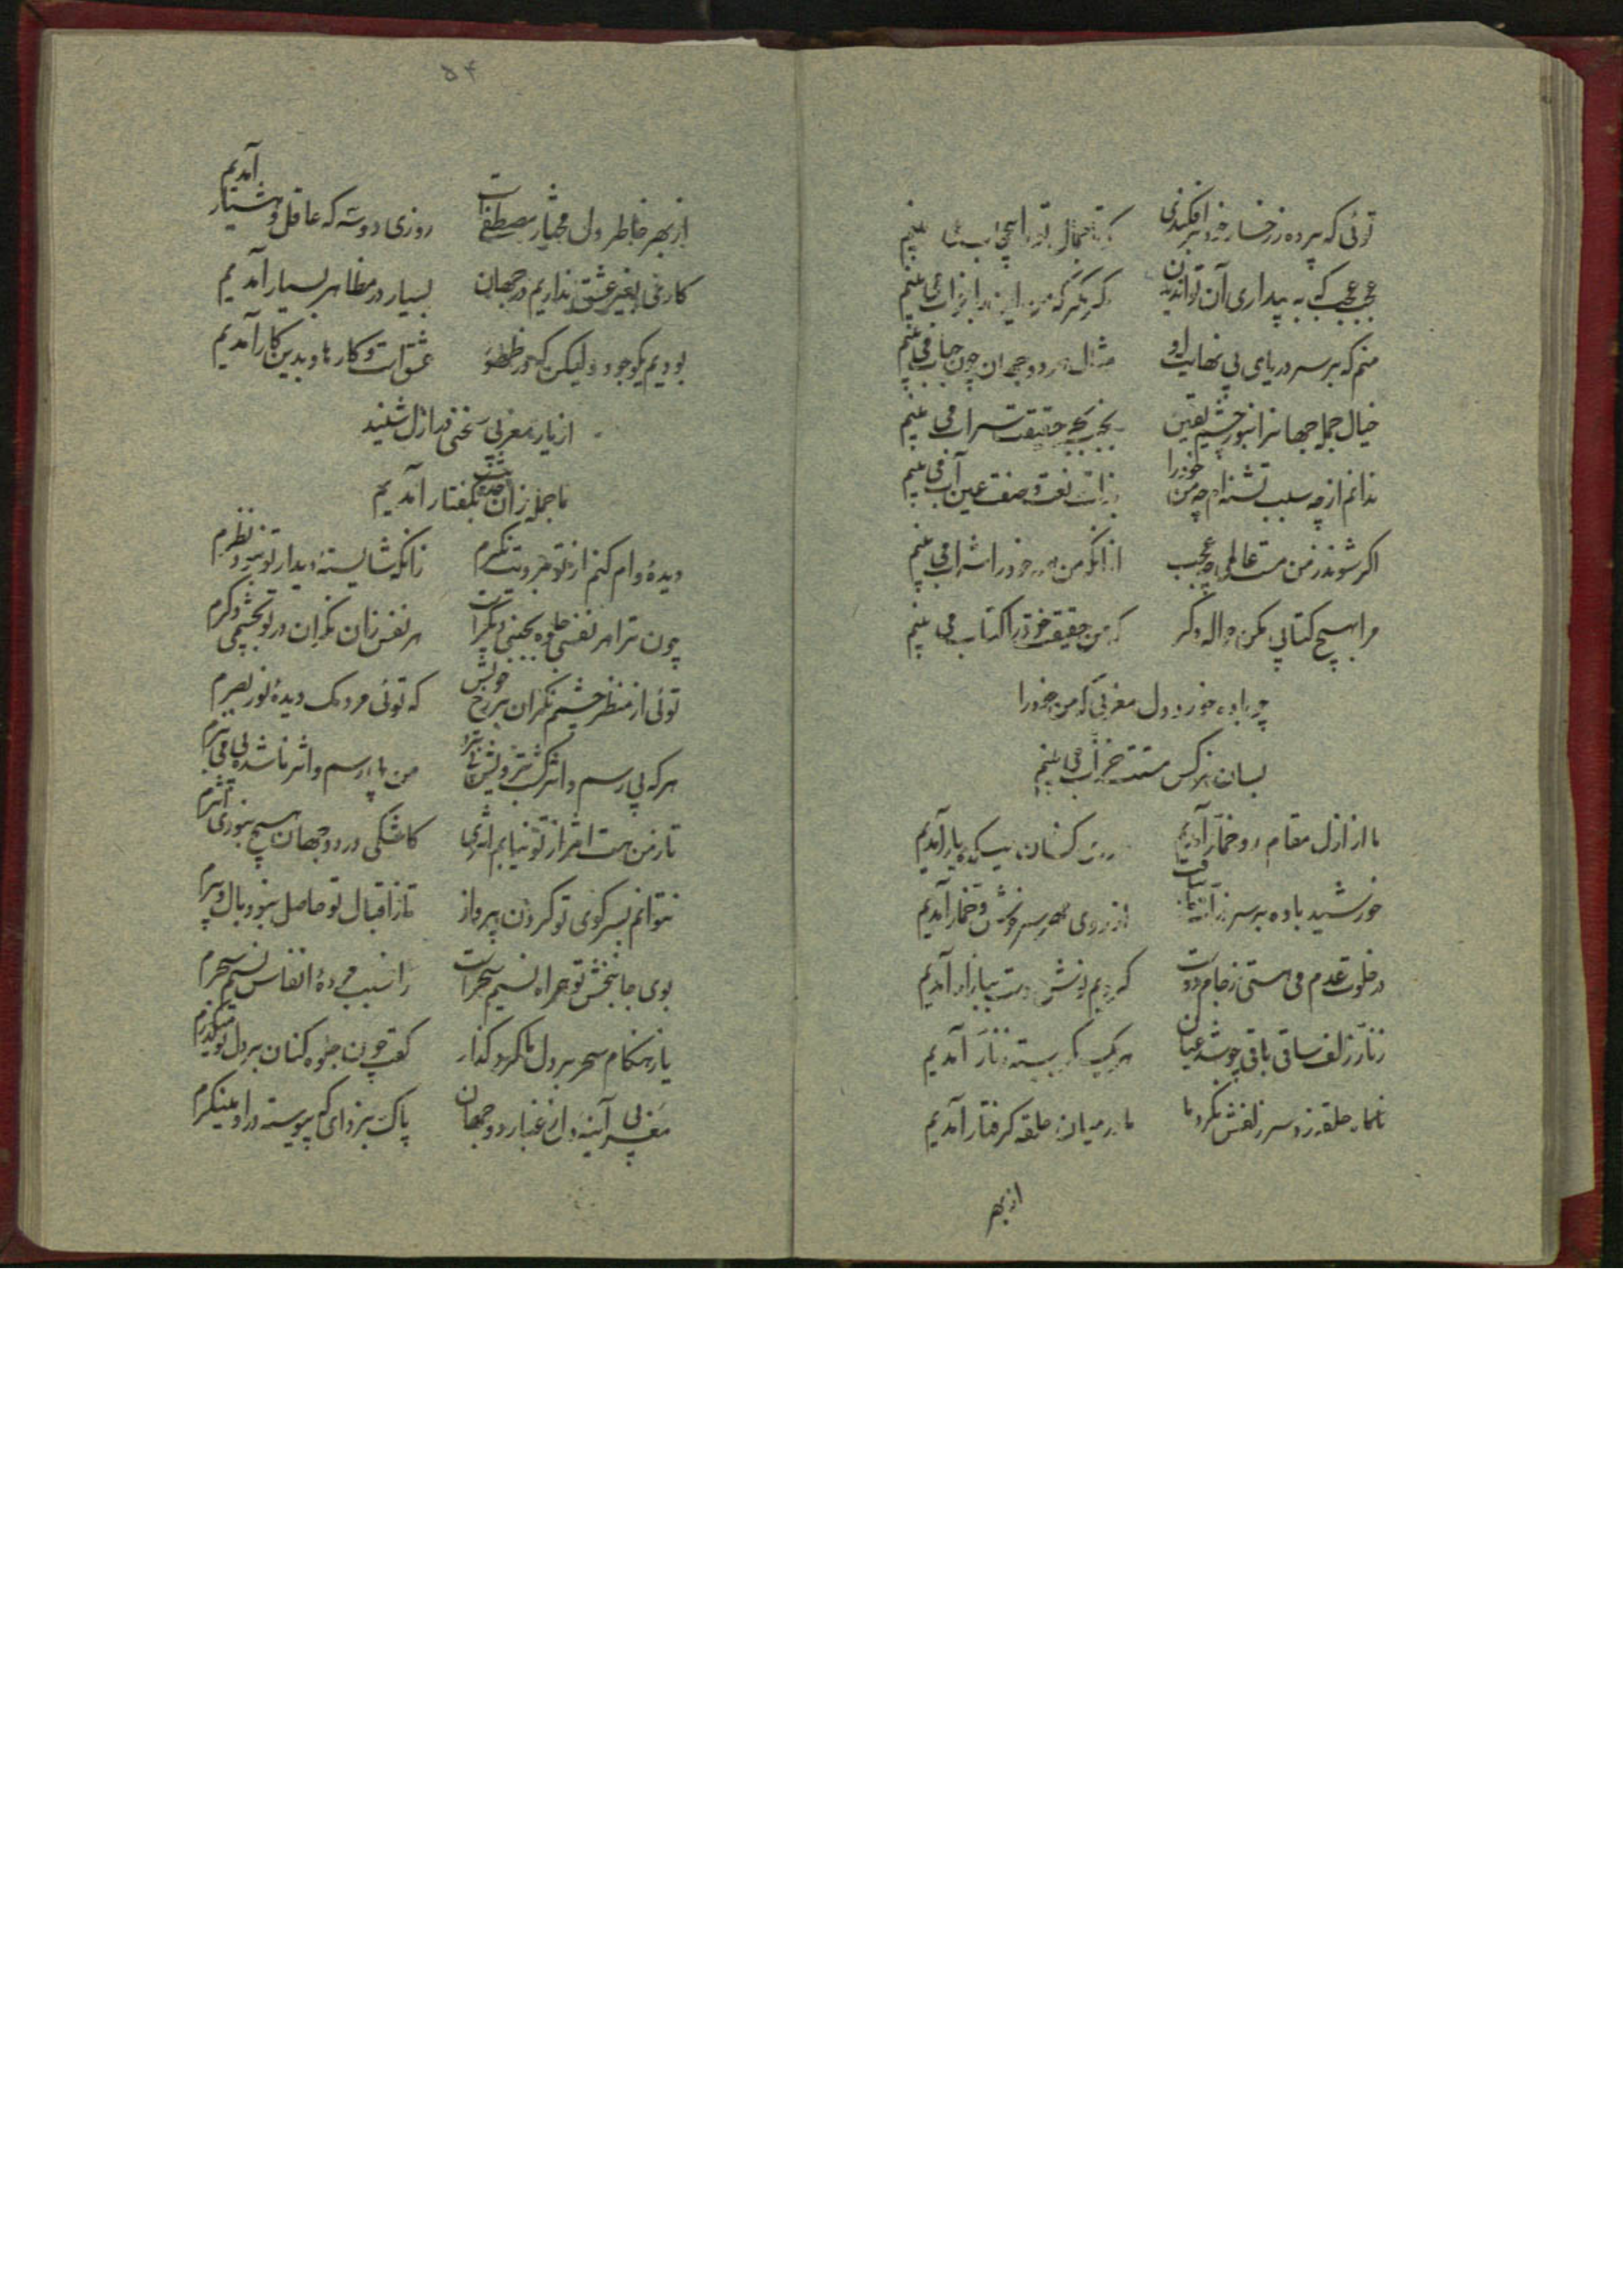 توئی که پرده ز رخسار خود برافکندی که تا جمال ترا بی‌حجاب می‌بینم
عجب عجب که به بیداری آن توان دیدن که من این را بخواب می‌بینم
منم که بر سر دریای بی نهایت او مثال هر دو جهان چون حباب می بینم
خیال جمله جهانرا بنور چشم یقین بجنب بحر حقیقت سراب می بینم
ندانم از چه سبب تشنه‌ام چو من خود را بذات نعت و صفت عین آب می بینم
اگر شوند ز من مست عالمی چه عجب از آنکه من همه خود را شراب می بینم
مرا بهیچ کتابی مکن حواله دگر که من حقیقت خود را کتاب می بینم
چه باده خورد دل مغربی که من خود را
بسان نرگس مستت خراب می بینم
ما از ازل مقام و خمار آمدیم رقص کنان بمیکده یار آمدیم
خورشید باده بر سر ذرات ما بتافت از روی مهر سرخوش و خمار آمدیم
در خلوت عدم می هستی ز جام دوست کردیم نوش و مست ببازار آمدیم
زنار زلف ساقی باقی چو شد عیان هر یک کمر ببسته زنار آمدیم
ناگاه حلقه زد سر زلفش بگرد ما ما در میان حلقه گرفتار آمدیم
از بهر
۵۴
از بهر خاطر دل مختار مصطفی است روزی دو سه که عاقل و هشیار آمدیم
کاری بغیر عشق نداریم در جهان بسیار در مظاهر بسیار آمدیم
بودیم یک وجود ولیکن گه ظهور عشق است کار ما و بدین کار آمدیم
از یار مغربی سخنی در ازل شنید
ما جمله زان حدیث بگفتار آمدیم
دیده وام کنم از تو برویت نگرم زانکه شایسته دیدار تو نبود نظرم
چون ترا هر نفسی جلوه بحسنی دگر است هر نفس زان نگران در تو بچشمی دگرم
توئی از منظر چشمم نگران بر رخ خویش که توئی مردمک دیده و نور بصرم
هر که بی رسم و اثر گشت برویش پی برد من بی رسم و اثر ناشده پی می نبرم
تا ز من هست اثر از تو نیابم اثری کاشکی در دو جهان هیچ نبودی اثرم
نتوانم بسر کوی تو کردن پرواز تا ز اقبال تو حاصل نبود بال و پرم
بوی جانبخش تو همراه نسیم سحر است زان سبب مرده انفاس نسیم سحرم
یار هنگام سحر بر دل ما کرد گذار گفت چون جلوه کنان بر دل تو میگذرم
مغربی آینه دل ز غبار دو جهان پاک بزدای که پیوسته در او مینگرم